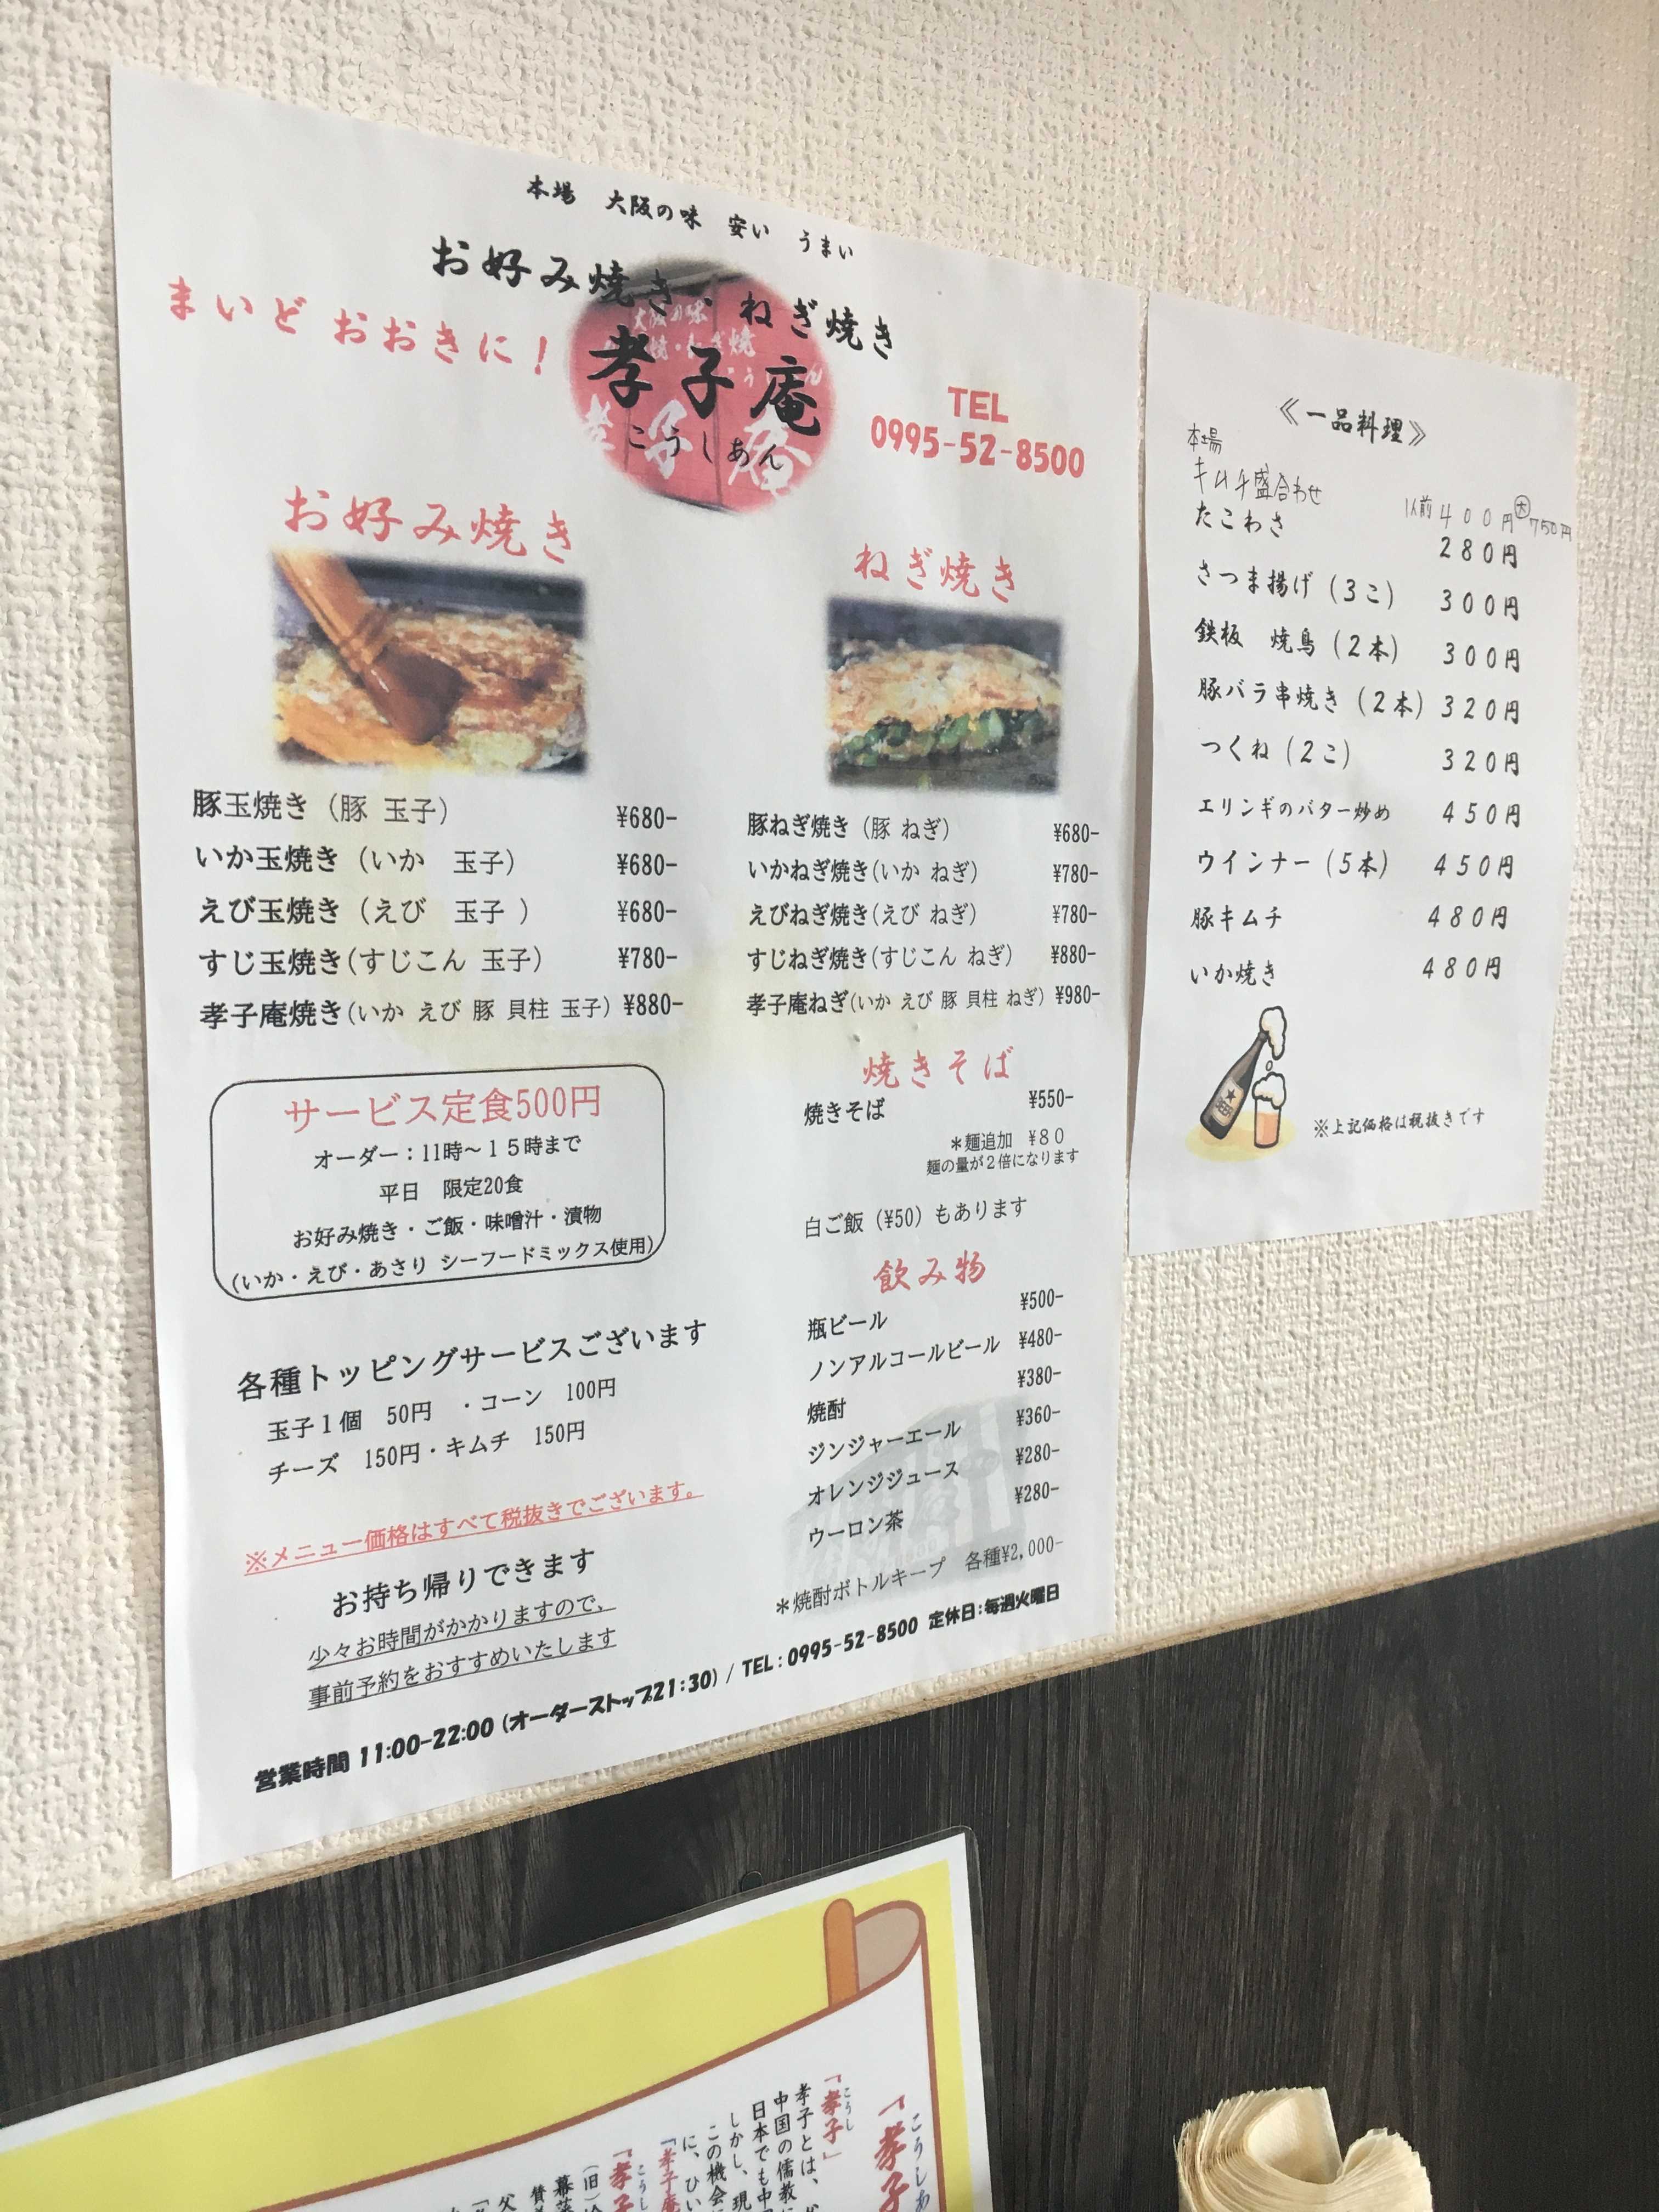 本場 大阪の味 安い うまい
お好み焼き・ねぎ焼き
まいど おおきに!
孝子庵
こうしあん
TEL
0995-52-8500
お好み焼き
豚玉焼き (豚 玉子) ¥680-
いか玉焼き (いか 玉子) ¥680-
えび玉焼き (えび 玉子 ) ¥680-
すじ玉焼き(すじこん 玉子) ¥780-
孝子庵焼き(いか えび 豚 貝柱 玉子) ¥880-
サービス定食500円
オーダー:11時~15時まで
平日 限定20食
お好み焼き・ご飯・味噌汁・漬物
(いか・えび・あさり シーフードミックス使用)
各種トッピングサービスございます
玉子1個 50円 ・コーン 100円
チーズ 150円・キムチ 150円
※メニュー価格はすべて税抜きでございます。
お持ち帰りできます
少々お時間がかかりますので、
事前予約をおすすめいたします
ねぎ焼き
豚ねぎ焼き (豚 ねぎ) ¥680-
いかねぎ焼き(いか ねぎ) ¥780-
えびねぎ焼き(えび ねぎ) ¥780-
すじねぎ焼き(すじこん ねぎ) ¥880-
孝子庵ねぎ(いか えび 豚 貝柱 ねぎ) ¥980-
焼きそば
焼きそば ¥550-
*麺追加 ¥80
麺の量が2倍になります
白ご飯 (¥50) もあります
飲み物
瓶ビール ¥500-
ノンアルコールビール ¥480-
焼酎 ¥380-
ジンジャーエール ¥360-
オレンジジュース ¥280-
ウーロン茶 ¥280-
*焼酎ボトルキープ 各種¥2,000-
営業時間 11:00-22:00 (オーダーストップ21:30) / TEL:0995-52-8500 定休日:毎週火曜日
《一品料理》
本場
キムチ盛合わせ 1人前400円 大750円
たこわさ 280円
さつま揚げ (3こ) 300円
鉄板 焼鳥 (2本) 300円
豚バラ串焼き (2本) 320円
つくね (2こ) 320円
エリンギのバター炒め 450円
ウインナー (5本) 450円
豚キムチ 480円
いか焼き 480円
※上記価格は税抜きです
こうしあ
「孝子
こうし
「孝子」
孝子とは、
中国の儒教に
日本でも中
しかし、現
この機会
に、ひい
「孝子庵
こうし
「孝子
(旧)
幕藩
父